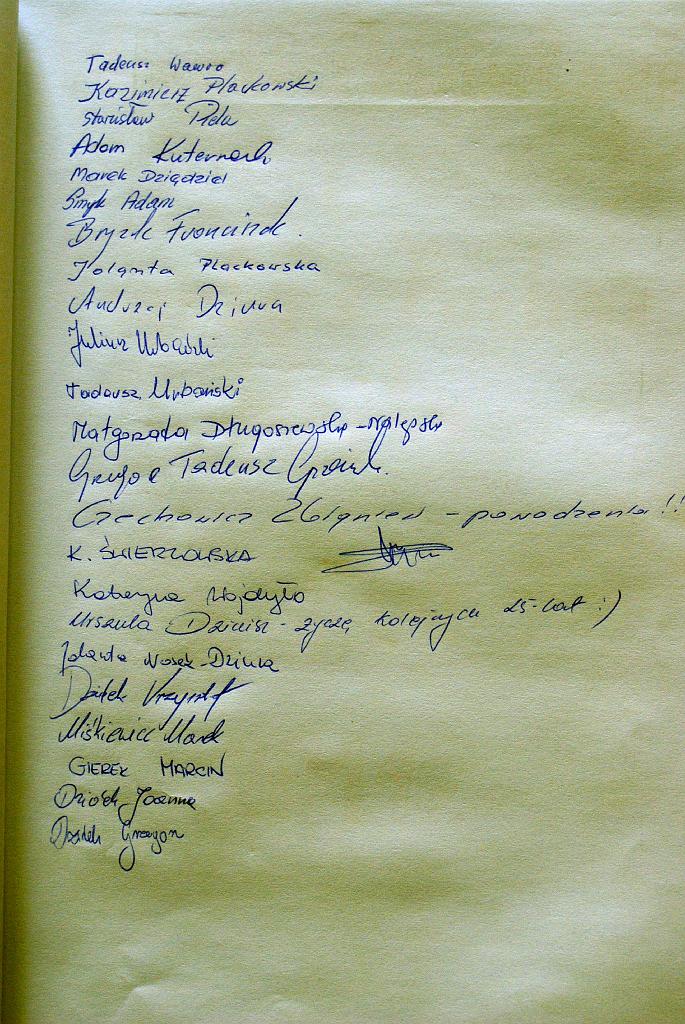 Tadeusz Wawro
Kazimierz Plackowski
Stanisław
Adam Kuternoch
Marek Dziędziel
Smyk Adam
Bryzk Franciszek.
Jolanta Plackowska
Andrzej Dziura
Juliusz Urbański
Tadeusz Urbański
Małgorzata Długoszewska-Nalepska
Tadeusz
Czechowicz Zbigniew - powodzenia!!
K. ŚWIERZOWSKA
Katarzyna Wojdyło
Urszula Dzinisz - życzę kolejnych 25-lat :)
Jolanta Nosek-Dziura
Dziitek Krzysztof
Miśkiewicz Marek
GIEREK MARCIN
Joanna
Grzegorz